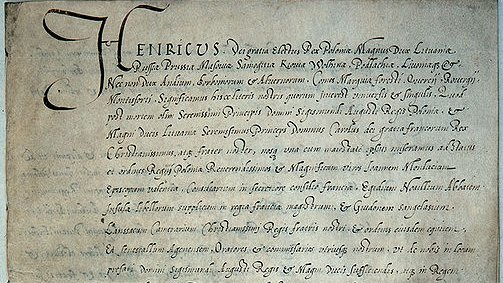 HENRICUS Dei gratia Electus Rex Poloniæ Magnus Dux Lituaniæ
Russiæ Prussiæ Masoviæ Samogitiæ Kioviæ Wolhiniæ Podlachiæ Livoniæq3 &
Nec non Dux Andium, Borboniorum & Alvernorum, Comes Marchiæ Foresti Quercii Rovergii
Montisfortii Significamus hisce literis nostris quorum interest universis & singulis. Quod
post mortem olim Serenissimi Principis Domini Sigismundi Augusti Regis Poloniæ &
Magni Ducis Lituaniæ Serenissimus Princeps Dominus Carolus dei gratia francorum Rex
Christianissimus, atq3 frater noster, nosq3 una cum maiestate ipsius miseramus ad status
et ordines Regni Poloniæ Reverendissimos & Magnificum viros Joannem Monlucium
Episcopum Valentiæ, Consiliarium in secretiore consilio franciæ, Egidium Noallium Abbatem
Insulæ libellorum supplicum in regia franciæ magistrum, & Guidonem Sangelasium
Lansacum Camerarium Christianissimi Regis fratris nostri, & ordinis eiusdem equitem
Et senescallum Agenensem, Oratores & commissarios utriusq3 nostrum, ut de nobis in locum
præfati domini Sigismundi Augusti Regis & Magni Ducis sufficiendis, atq3 in Regem